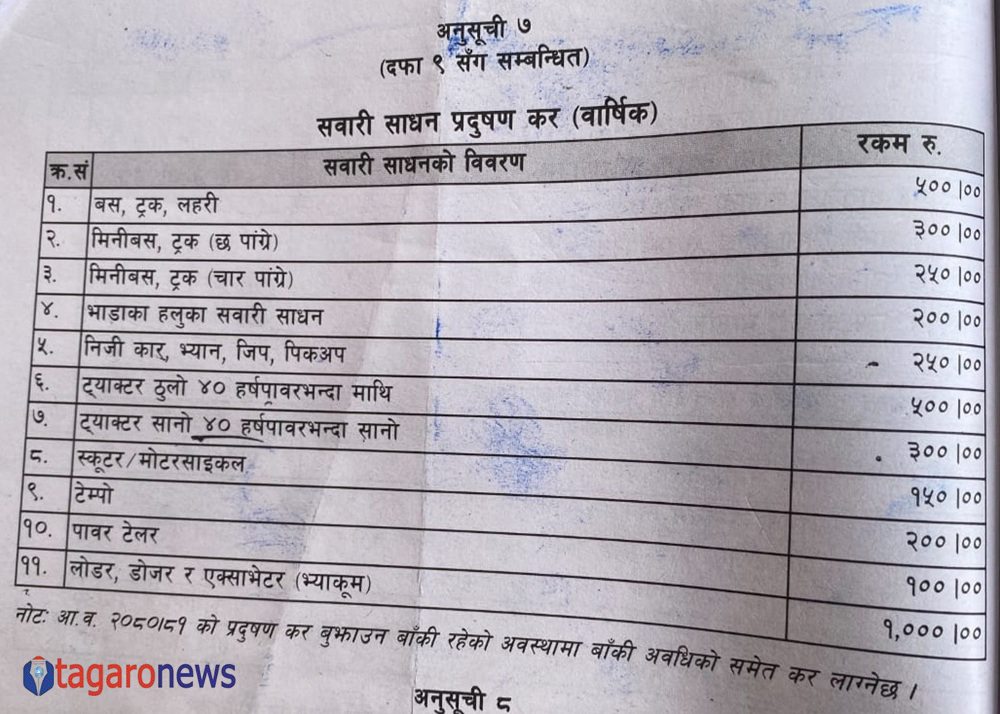 अनुसूची ७
(दफा ९ सँग सम्बन्धित)
सवारी साधन प्रदुषण कर (वार्षिक)
क्र.सं सवारी साधनको विवरण रकम रु.
१. बस, ट्रक, लहरी ५००।००
२. मिनीबस, ट्रक (छ पांग्रे) ३००।००
३. मिनीबस, ट्रक (चार पांग्रे) २५०।००
४. भाडाका हलुका सवारी साधन २००।००
५. निजी कार, भ्यान, जिप, पिकअप २५०।००
६. ट्याक्टर ठुलो ४० हर्षपावरभन्दा माथि ५००।००
७. ट्याक्टर सानो ४० हर्षपावरभन्दा सानो ३००।००
८. स्कूटर/मोटरसाइकल १५०।००
९. टेम्पो २००।००
१०. पावर टेलर १००।००
११. लोडर, डोजर र एक्साभेटर (भ्याकूम) १,०००।००
नोटः आ.व. २०८०।८१ को प्रदुषण कर बुझाउन बाँकी रहेको अवस्थामा बाँकी अवधिको समेत कर लाग्नेछ ।
tagaronews
अनुसूची ८